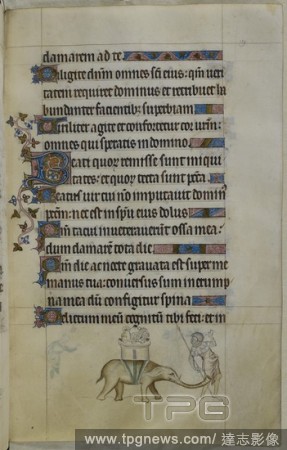 clamarem ad te
Diligite dñm omnes sci eius: qm̃ ueri
tatem requiret dominus et retribuet ha
bundanter facientib; superbiam
Uiriliter agite et confortetur cor uirm̃:
omnes qui speratis in domino
Beati quorũ remisse sunt iniqui
tates: et quorũ tecta sunt pctã
Beatus uir cui nõ imputauit domin̾
pctm̃: nec est in spũ eius dolus
Qm̃ tacui inueterauerũt ossa mea:
dum clamarẽ tota die
Qm̃ die ac nocte grauata est super me
manus tua: conuersus sum in erump
na mea dũ configitur spina
Delictum meũ cognitũ tibi feci: et in
TPG
www.tpgnews.com / 達志影像